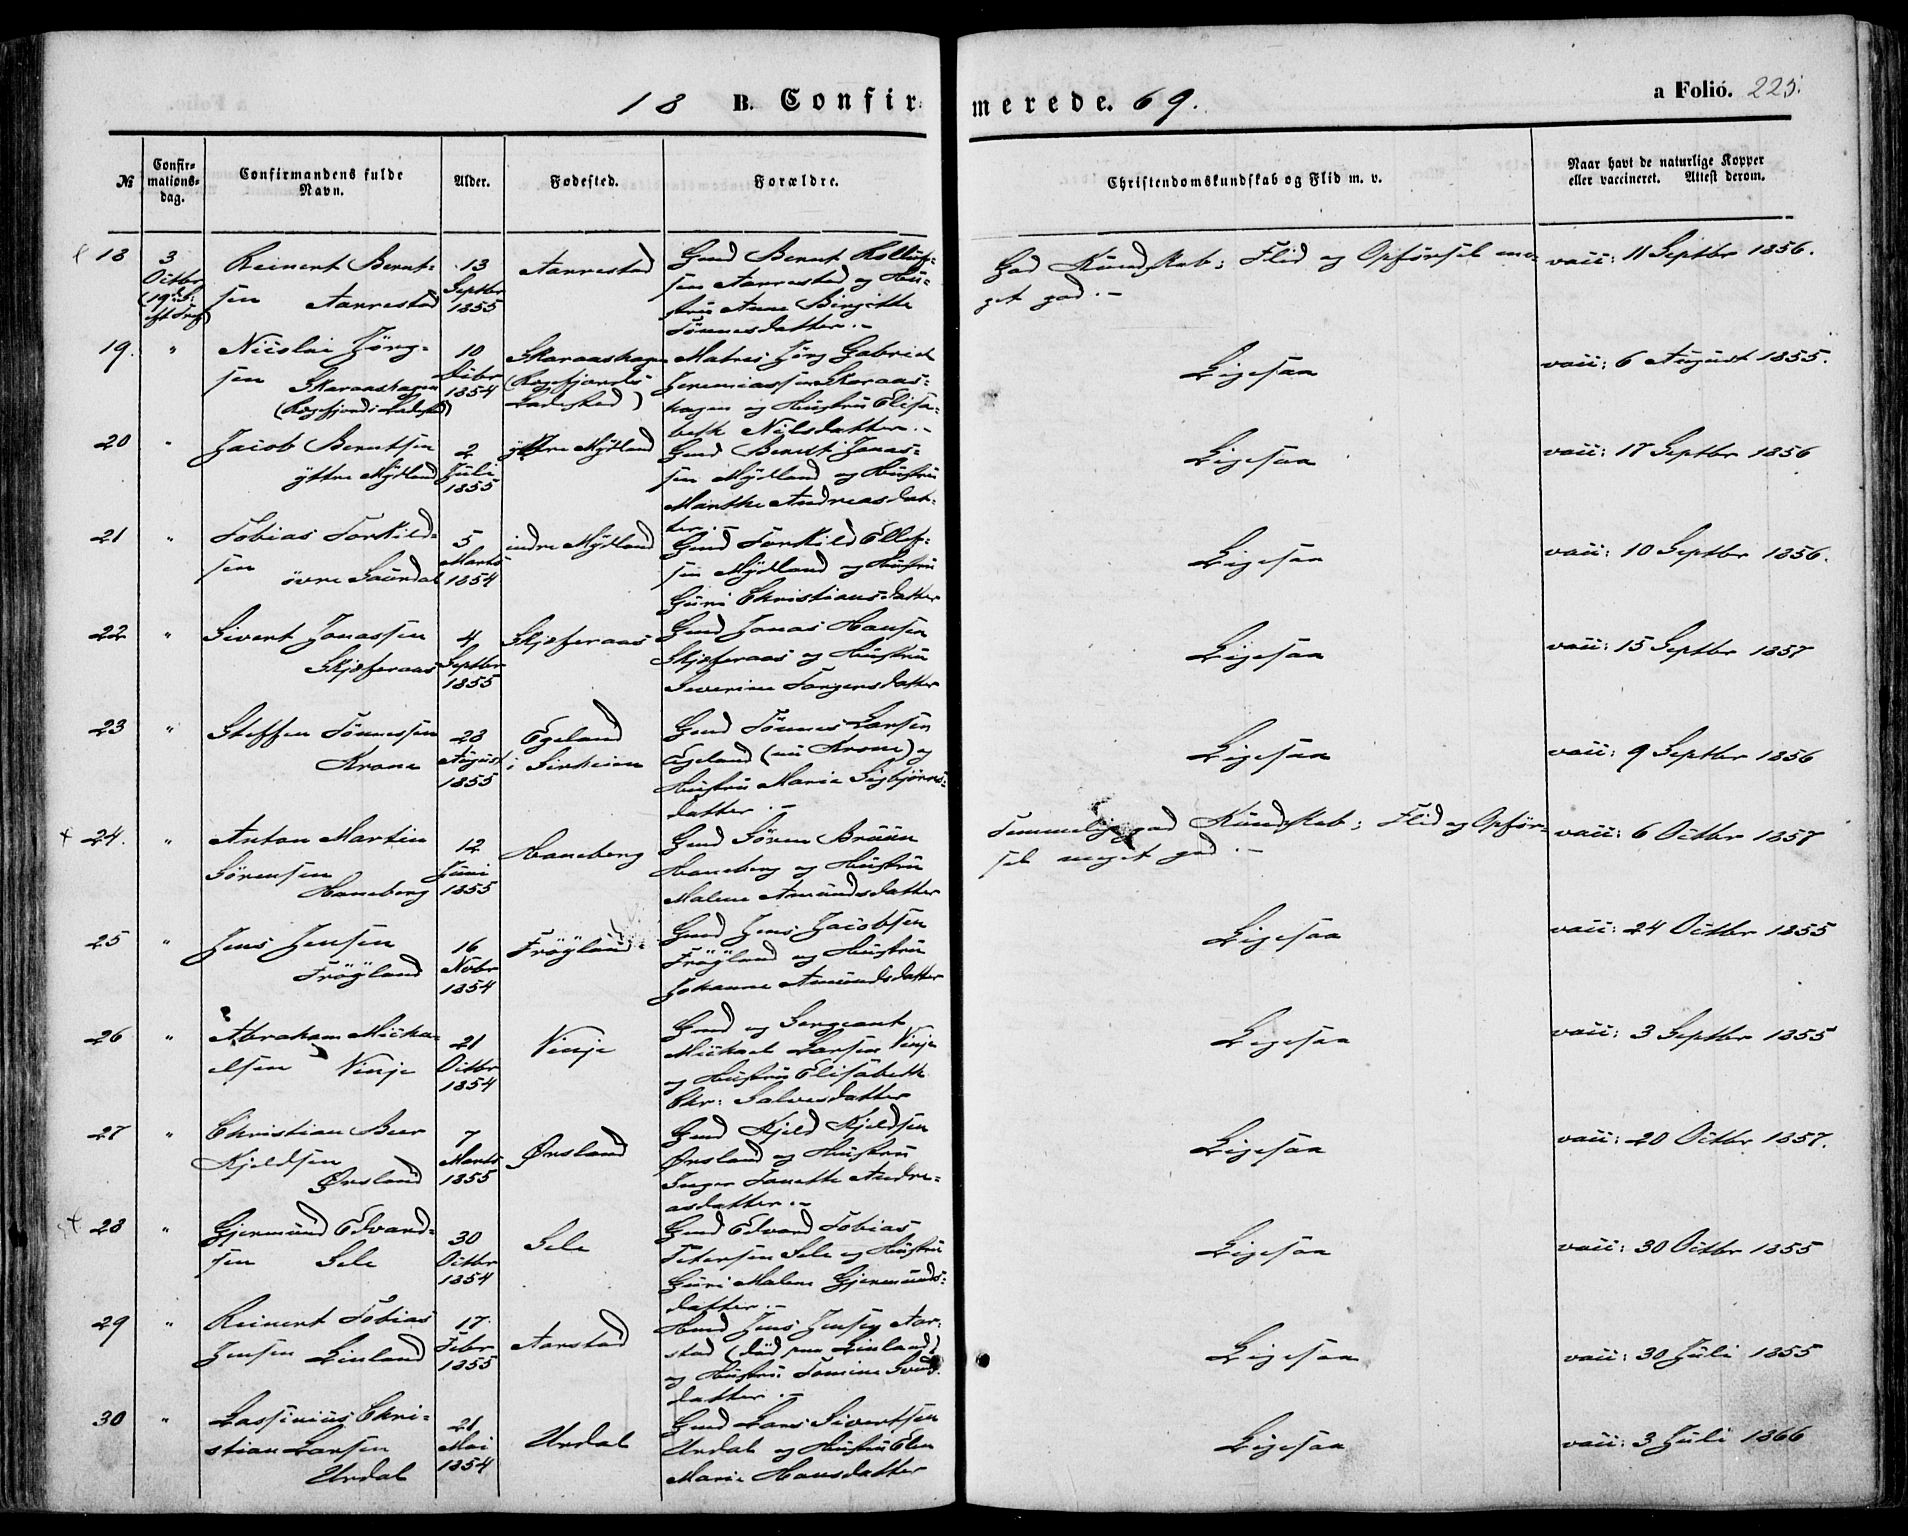 18 B. Confirmerede. 69.
a Folió. 225.
№
Confir-
mations-
dag.
Confirmandens fulde
Navn.
Alder.
Fødested.
Forældre.
Christendomskundskab og Flid m. v.
Naar havt de naturlige Kopper
eller vaccineret. Attest derom.
18
3
Octbr
Reinert Bernt-
sen Aarrestad
13
Septbr
1855
Aarrestad
Gmd Bernt
sen Aarrestad og Hu-
stru Anne Birgitte
Tønnesdatter.-
God Kundskab; Flid og Opførsel me-
get god.-
vacc: 11 Septbr 1856.
19.
"
Nicolai Jørg-
sen Skaraashagen
(Rægefjords Ladested)
10
1854
Skaraashagen
(Rægefjords
Ladested)
Matros Jørg Gabriel
Jeremiassen Skaraas-
hagen og Hustru Elisa-
beth Nilsdatter.-
Ligesaa
vacc: 6 August 1855.
20
"
Jacob Berntsen
ÿttre Mÿdland
2
Juli
1855
ÿttre Mÿdland
Gmd Bernt Jonas-
sen Mÿdland og Hustru
Marthe Andreasdat-
ter.-
Ligesaa
vacc: 17 Septbr 1856
21
"
Tobias Torkild-
sen
övre Saurdal
5
Marts
1854
indre Mÿdland
Gmd Torkild Ellef-
sen Mÿdland og Hustru
Guri Christiansdatter
Ligesaa
vacc: 10 Septbr 1856.
22
"
Sivert Jonassen
Skjeferaas
4
Septbr
1855
Skjeferaas
Gmd Jonas Hansen
Skjeferaas og Hustru
Severine Torgersdatter
Ligesaa
vacc: 15 Septbr 1857
23
"
Steffen Tönnessen
Krone
28
August
1855
Egeland
i Sirheien
Gmd Tönnes Larsen
Egeland (nu Krone) og
Hustru Marie Sigbjørns-
datter.-
Ligesaa
vacc: 9 Septbr 1856
24.
"
Anton Martin
Sörensen
Haneberg
12
Juni
1855
Haneberg
Gmd Sören Bruun
Haneberg og Hustru
Malene Amundsdatter
Temmelig god Kundskab; Flid og Opför-
sel meget god.-
vacc: 6 Octbr 1857
25
"
Jens Jensen
Fröÿland
16
Novbr
1854
Fröÿland
Gmd Jens Jacobsen
Fröÿland og Hustru
Johanne Amundsdatter
Ligesaa
vacc: 24 Octbr 1855
26
"
Abraham Micha-
elsen Vinje
21
Octbr
1854
Vinje
Gmd og Sergeant
Michael Larsen Vinje
og Hustru Elisabeth
Chr: Salvesdatter
Ligesaa
vacc: 3 Septbr 1855
27
"
Christian Beer
Kjeldsen
Ørsland
7
Marts
1855
Ørsland
Gmd Kjeld Kjeldsen
Ørsland og Hustru
Inger Tonette Andre-
asdatter.-
Ligesaa
vacc: 20 Octbr 1857.
28
"
Gjermund Edvard-
sen Sele
30
Octbr
1854
Sele
Gmd Edvard Tobias
Petersen Sele og Hustru
Guri Malene Gjermunds-
datter.-
Ligesaa
vacc: 30 Octbr 1855
29
"
Reinert Tobias
Jensen Linland
17.
Febr
1855
Aarstad
Hmd Jens Jensen Aar-
stad (død paa Linland)
og Hustru Tomine
datter.-
Ligesaa
vacc: 30 Juli 1855
30
"
Lassinius Chri-
stian Larsen
Urdal
21
Mai
1854
Urdal
Gmd Lars Sivertsen
Urdal og Hustru Elen
Marie Hansdatter
Ligesaa
vacc: 3 Juli 1866